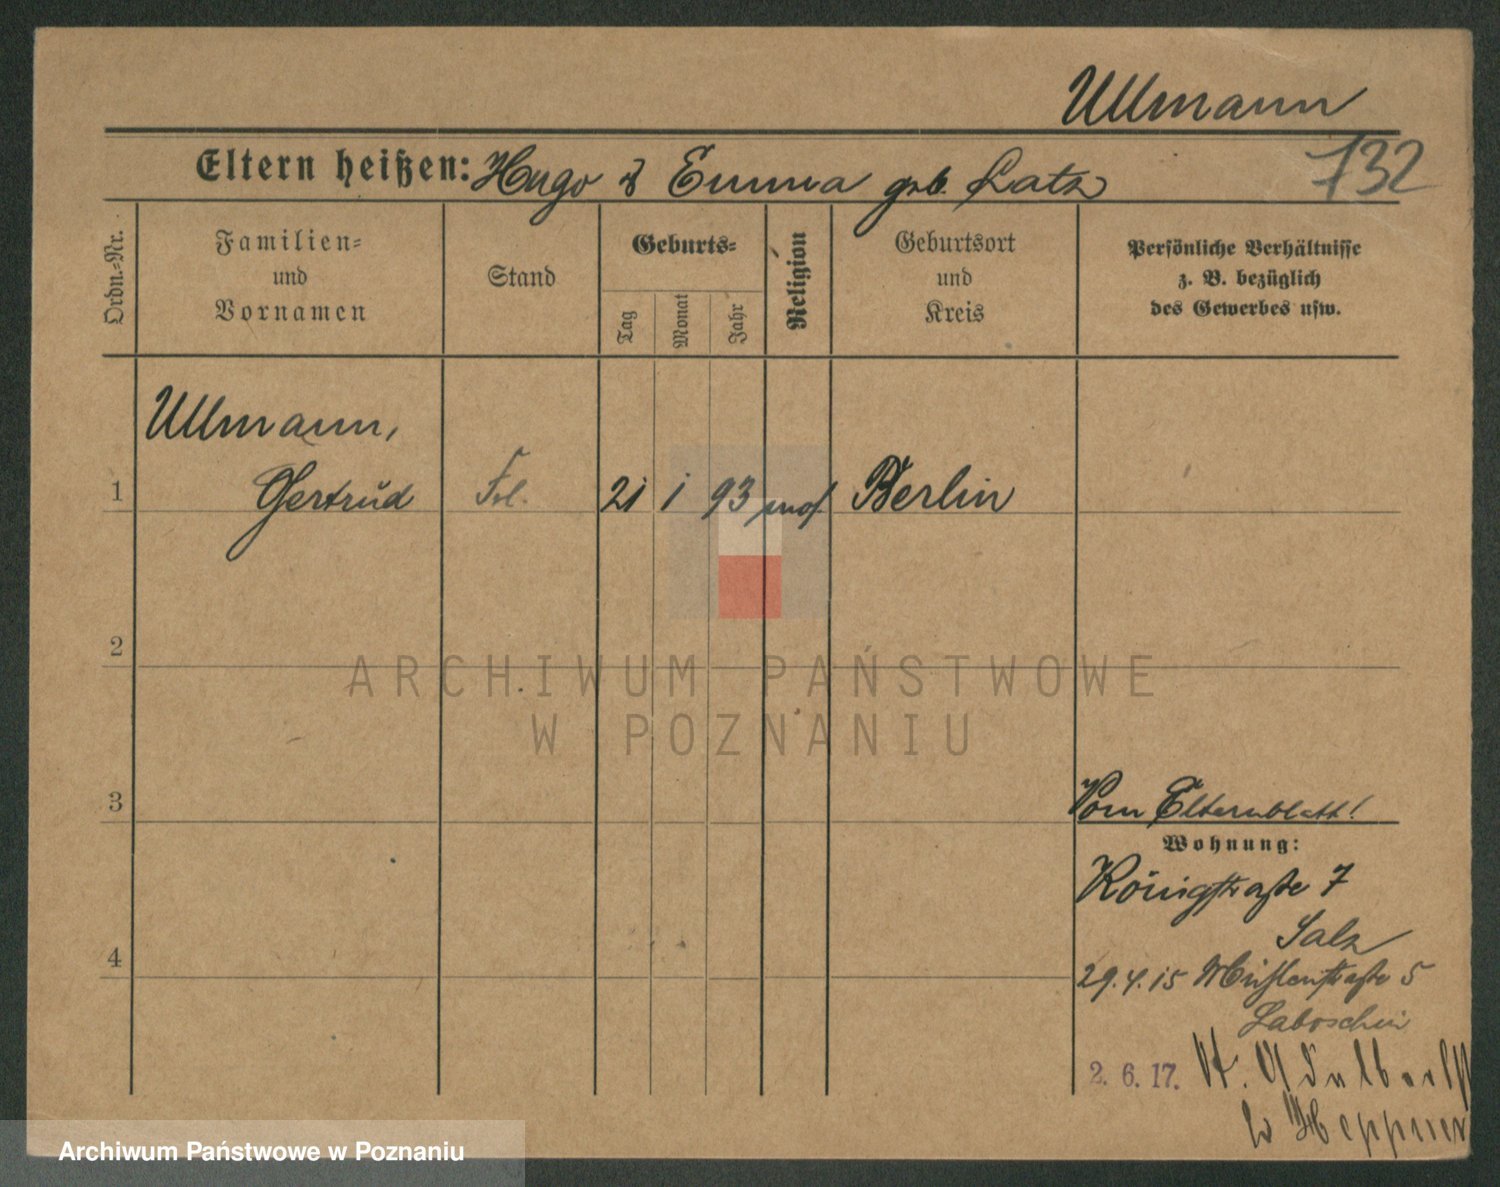 Ullmann
732
Eltern heißen: Hugo & Emma geb. Katz
Ordn.=Nr.
Familien=
und
Vornamen
Stand
Geburts=
Tag
Monat
Jahr
Religion
Geburtsort
und
Kreis
Persönliche Verhältnisse
z. B. bezüglich
des Gewerbes usw.
Ullmann,
1 Gertrud Frl. 21 1 93 mos. Berlin
2
3
4
Vom Elternblatt!
Wohnung:
Königstraße 7
Salz
29.4.15 Mühlenstraße 5
Laboschin
2. 6. 17. St. Adalbertst
b Heppner
ARCHIWUM PAŃSTWOWE
W POZNANIU
Archiwum Państwowe w Poznaniu